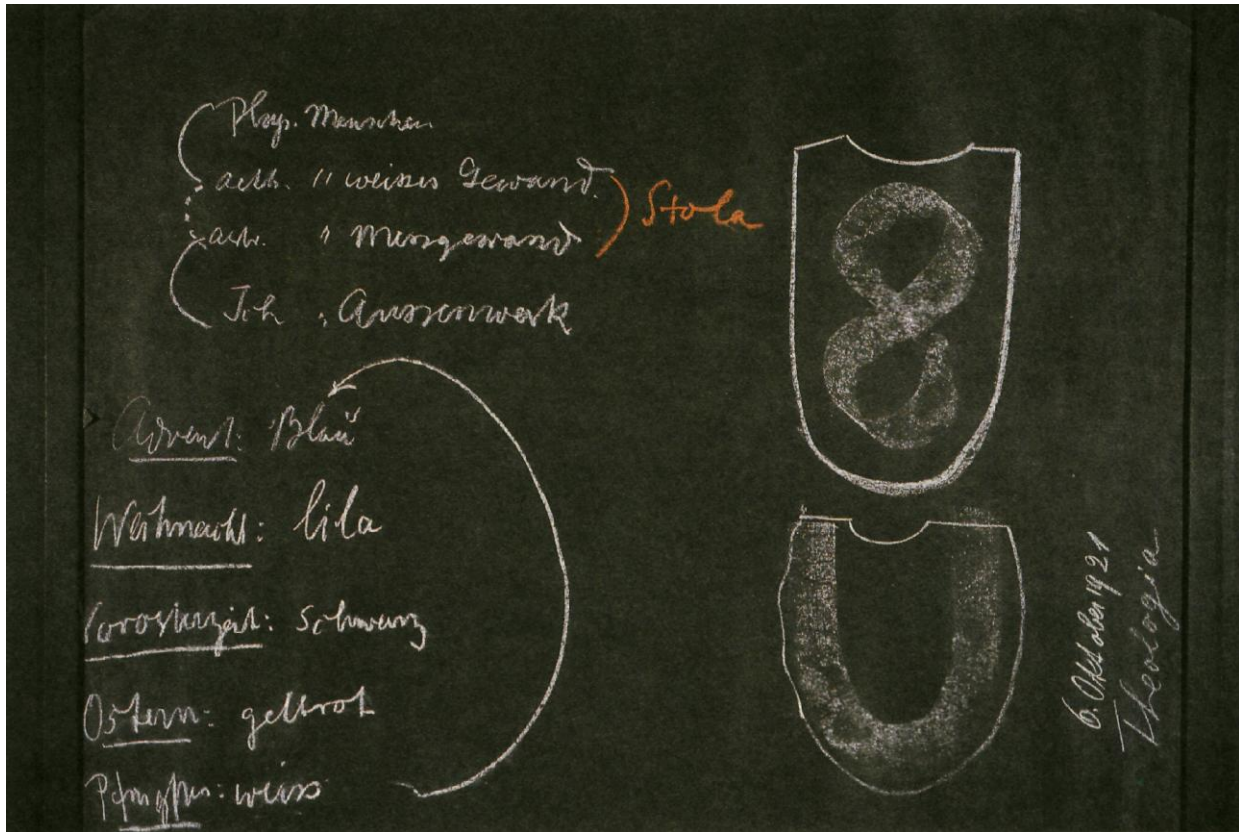 Phys. Menschen
aeth. " weisses Gewand
astr. " Messgewand
Stola
Ich : Aussenwerk
Advent: Blau
Weihnacht: lila
schwarz
Ostern: gelbrot
Pfingsten: weiss
6. Oktober 1921
Theologia